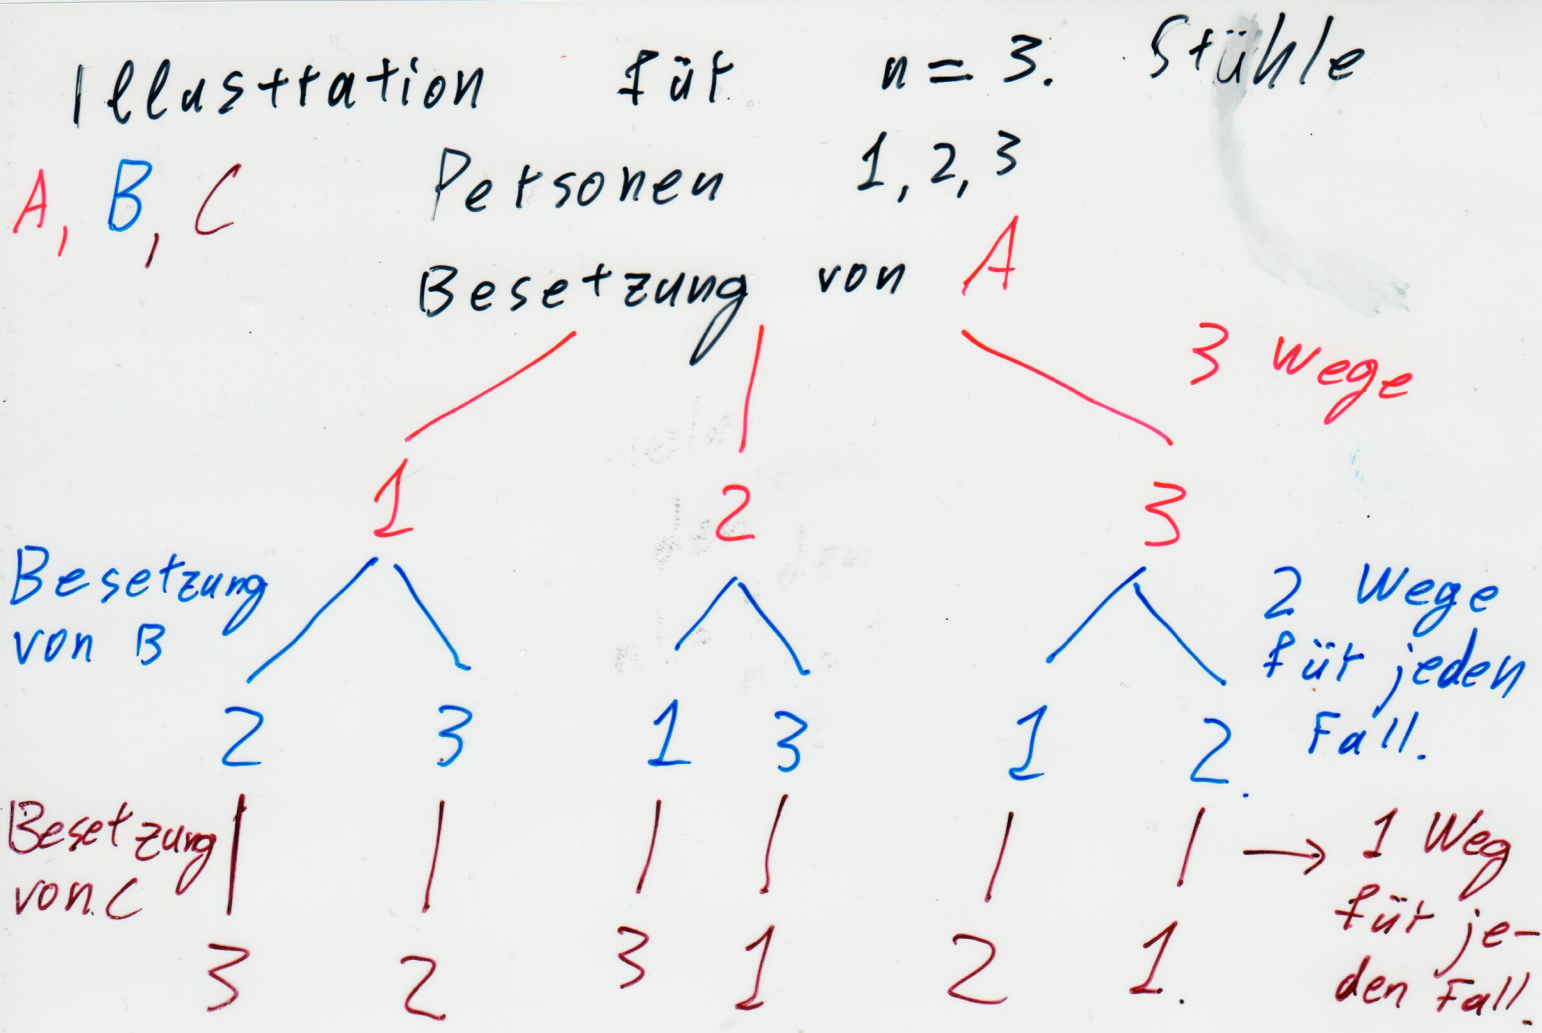 Illustration für n = 3. Stühle
A, B, C Personen 1, 2, 3
Besetzung von A
3 Wege
1 2 3
Besetzung
von B
2 Wege
für jeden
Fall.
2 3 1 3 1 2.
Besetzung
von C
→ 1 Weg
für je-
den Fall.
3 2 3 1 2 1.